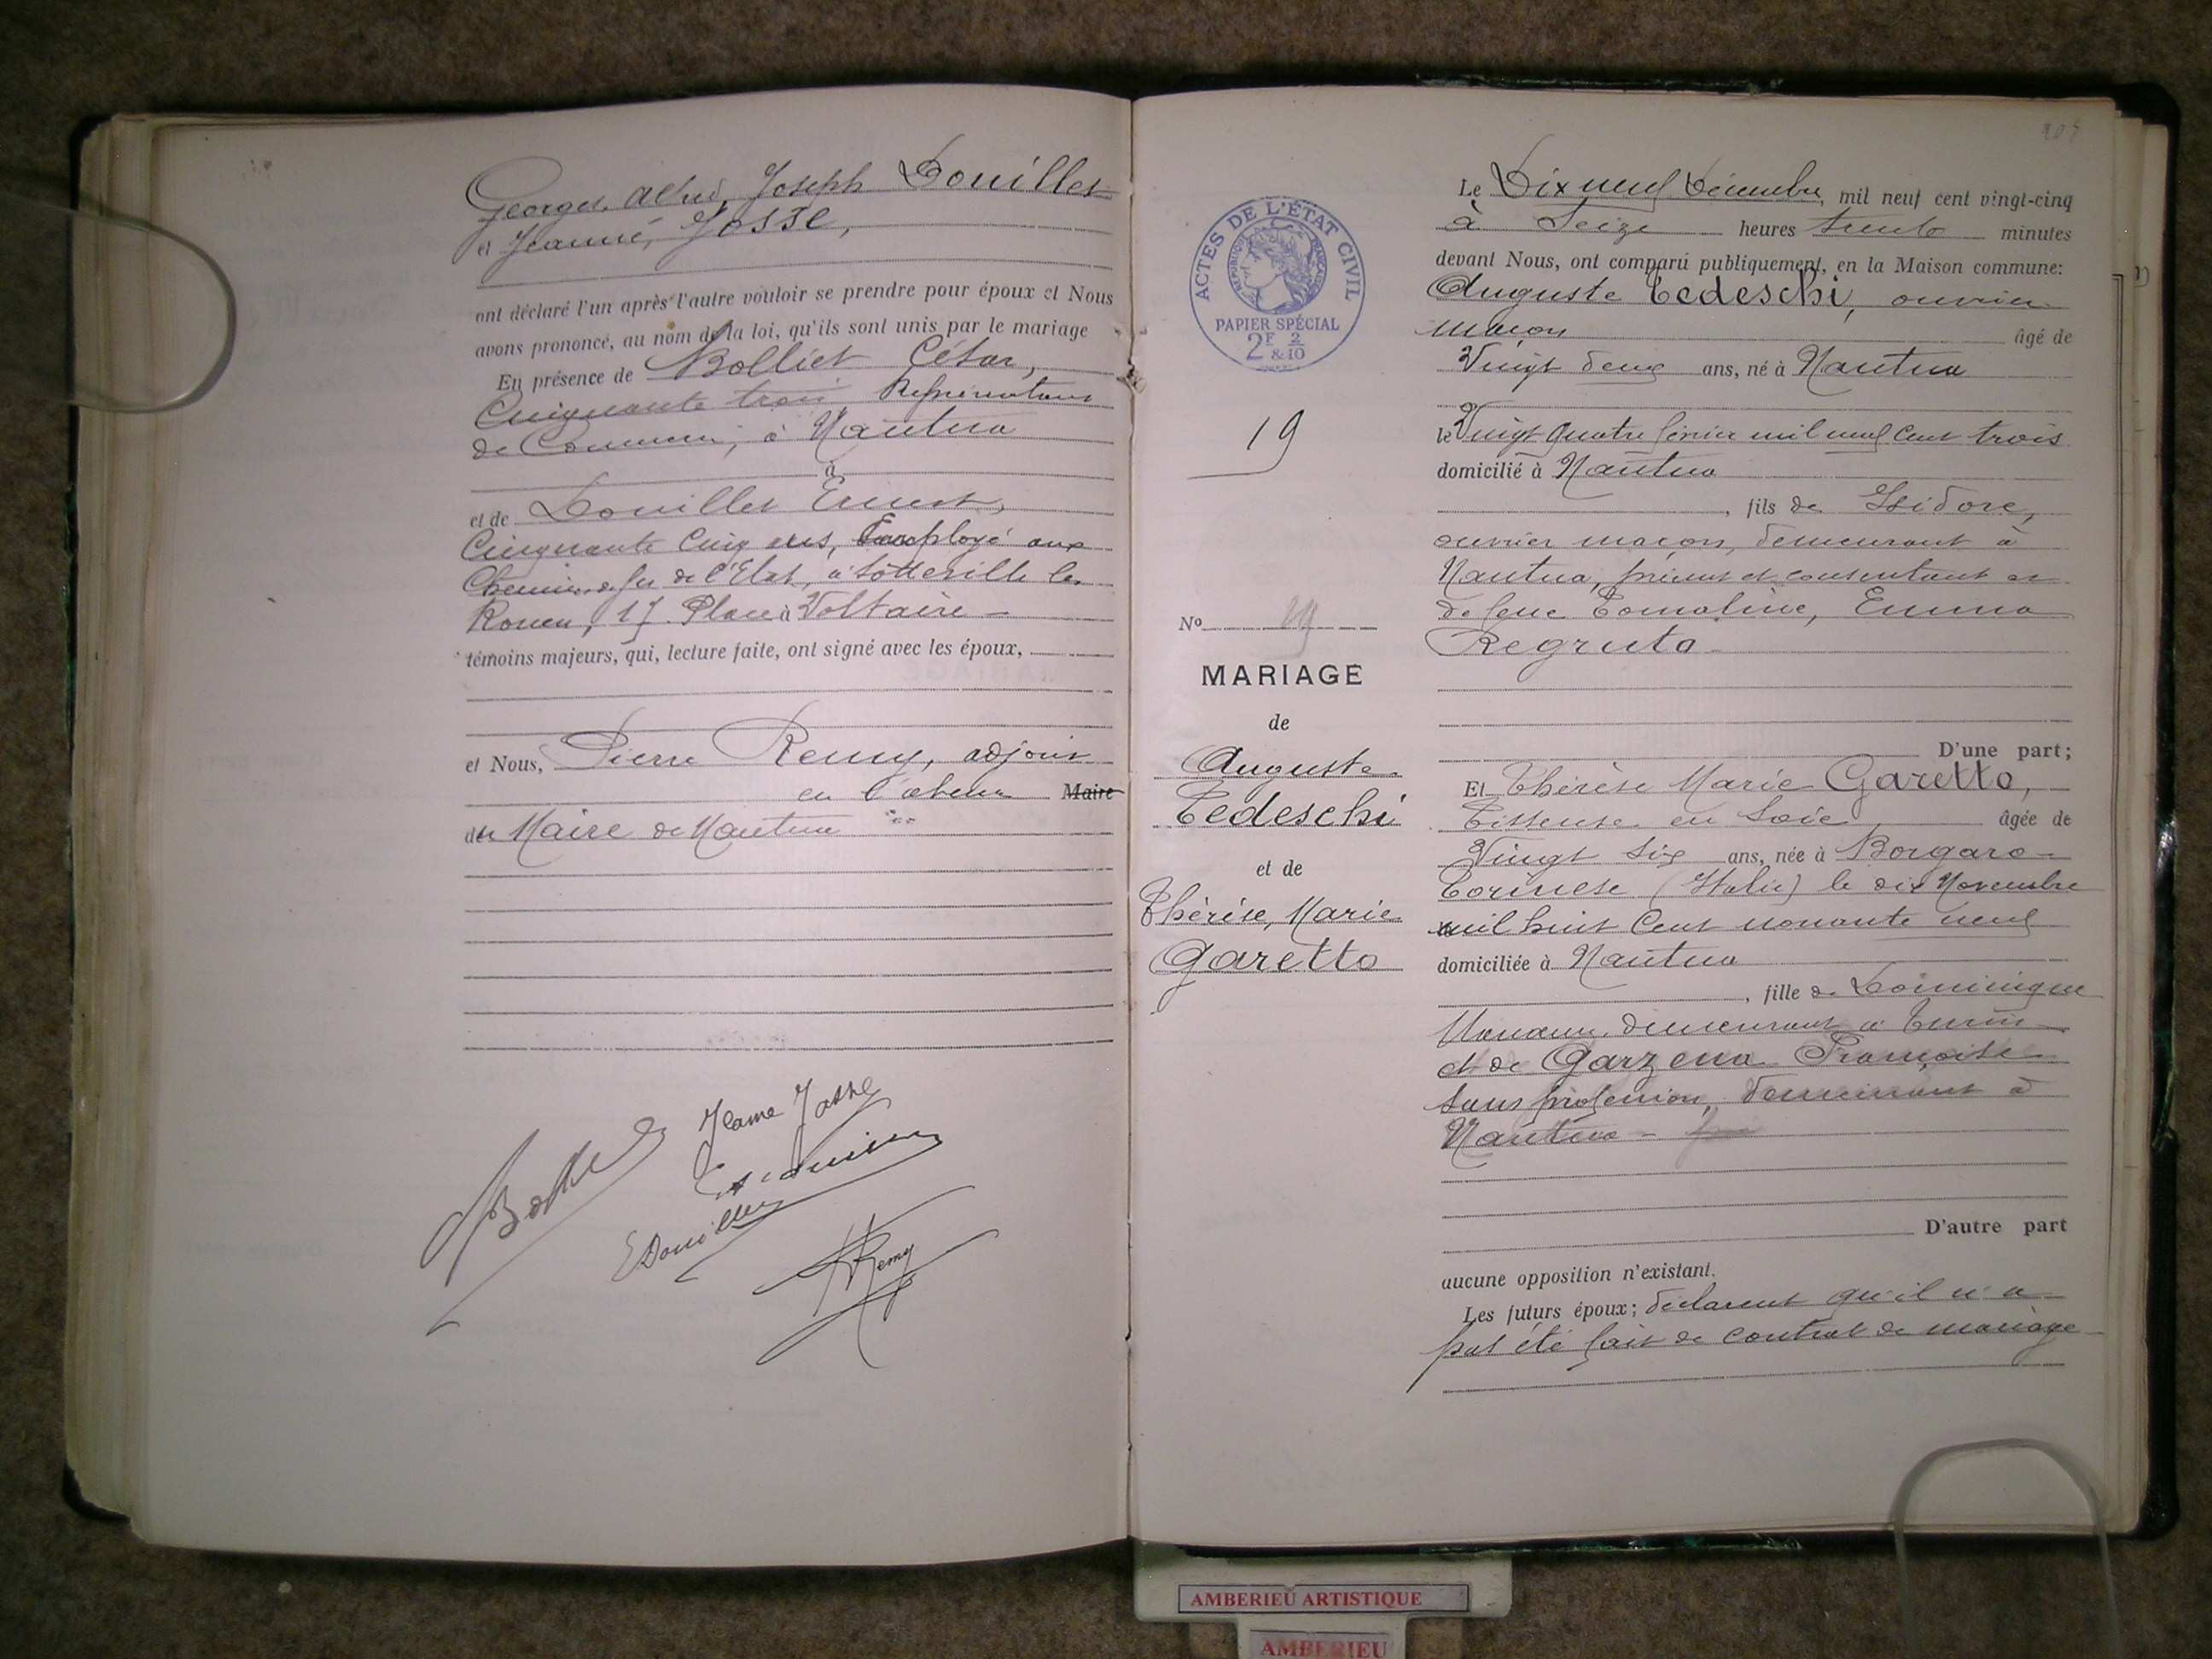 Georges, Alfred, Joseph Douillet
et Jeanne, Josse,
ont déclaré l'un après l'autre vouloir se prendre pour époux et Nous
avons prononcé, au nom de la loi, qu'ils sont unis par le mariage
En présence de Bolliet César,
Cinquante trois Représentant
de Commerce, à Nantua
à
et de Douillet Ernest,
Cinquante Cinq ans, Employé aux
Chemins de fer de l'Etat, à Sotteville les
Rouen, 17 Place à Voltaire
témoins majeurs, qui, lecture faite, ont signé avec les époux,
et Nous, Pierre Remy, adjoint
en l'absence Maire
du Maire de Nantua
Jeanne Josse
EDouillet
Remy
ACTES DE L'ÉTAT CIVIL
RÉPUBLIQUE FRANÇAISE
PAPIER SPÉCIAL
2F 2
&10
19
No 19
MARIAGE
de
Auguste
Tedeschi
et de
Thérèse, Marie
Garetto
Le Dix neuf Décembre, mil neuf cent vingt-cinq
à Seize heures trente minutes
devant Nous, ont comparu publiquement, en la Maison commune:
Auguste Tedeschi, ouvrier
maçon âgé de
Vingt deux ans, né à Nantua
le Vingt quatre février mil neuf cent trois
domicilié à Nantua
, fils de Isidore,
ouvrier maçon, demeurant à
Nantua, présent et consentant et
de feue Tomatine, Emma
Regruto
D'une part;
Et Thérèse Marie Garetto,
Tisseuse en Soie âgée de
Vingt six ans, née à Borgaro-
Torinese (Italie) le dix Novembre
mil huit cent nonante neuf
domiciliée à Nantua
, fille de Dominique
demeurant à Turin
et de Garzena Françoise
sans profession, demeurant à
Nantua
D'autre part
aucune opposition n'existant.
Les futurs époux; déclarent qu'il n'a
pas été fait de contrat de mariage
AMBERIEU ARTISTIQUE
AMBERIEU